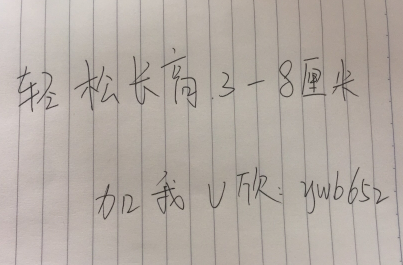 轻松长高.3-8厘米
加我V欣:ywb652